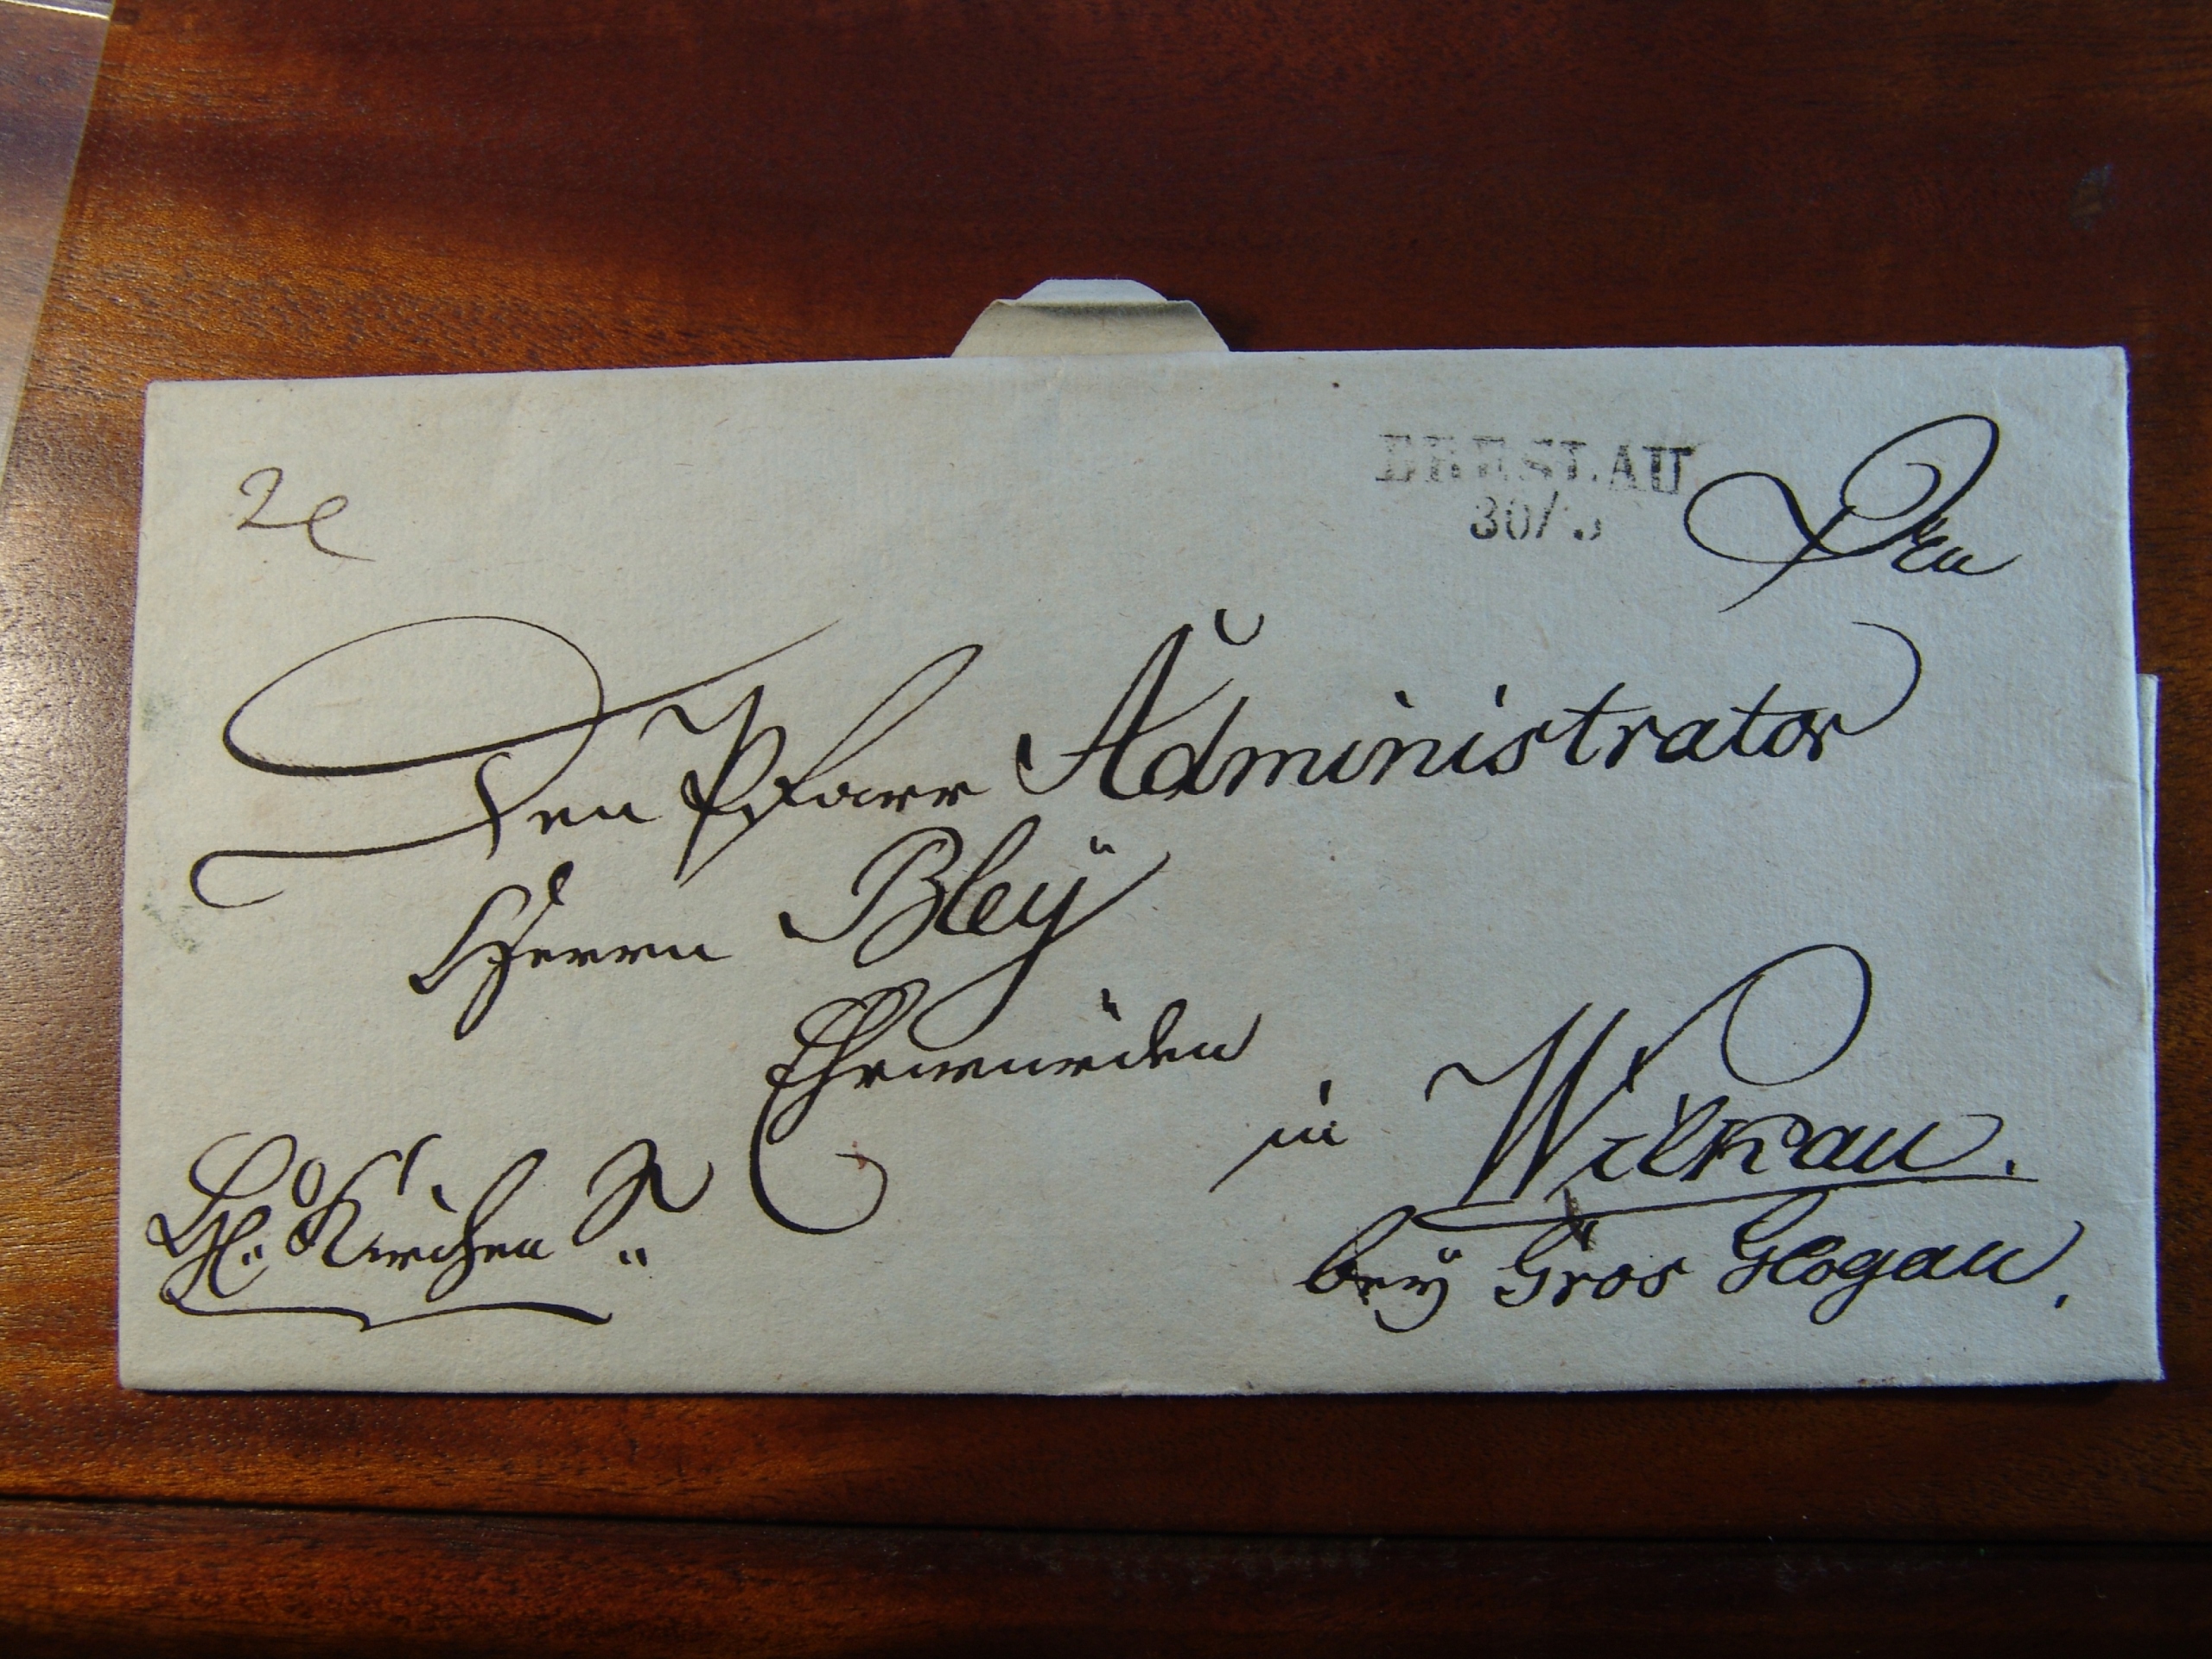 BRESLAU
30/
Den Pfarr Administrator
Herrn Bleÿ
Ehrwürden
in Wilkau.
beÿ Gros Glogau.
Kirchen